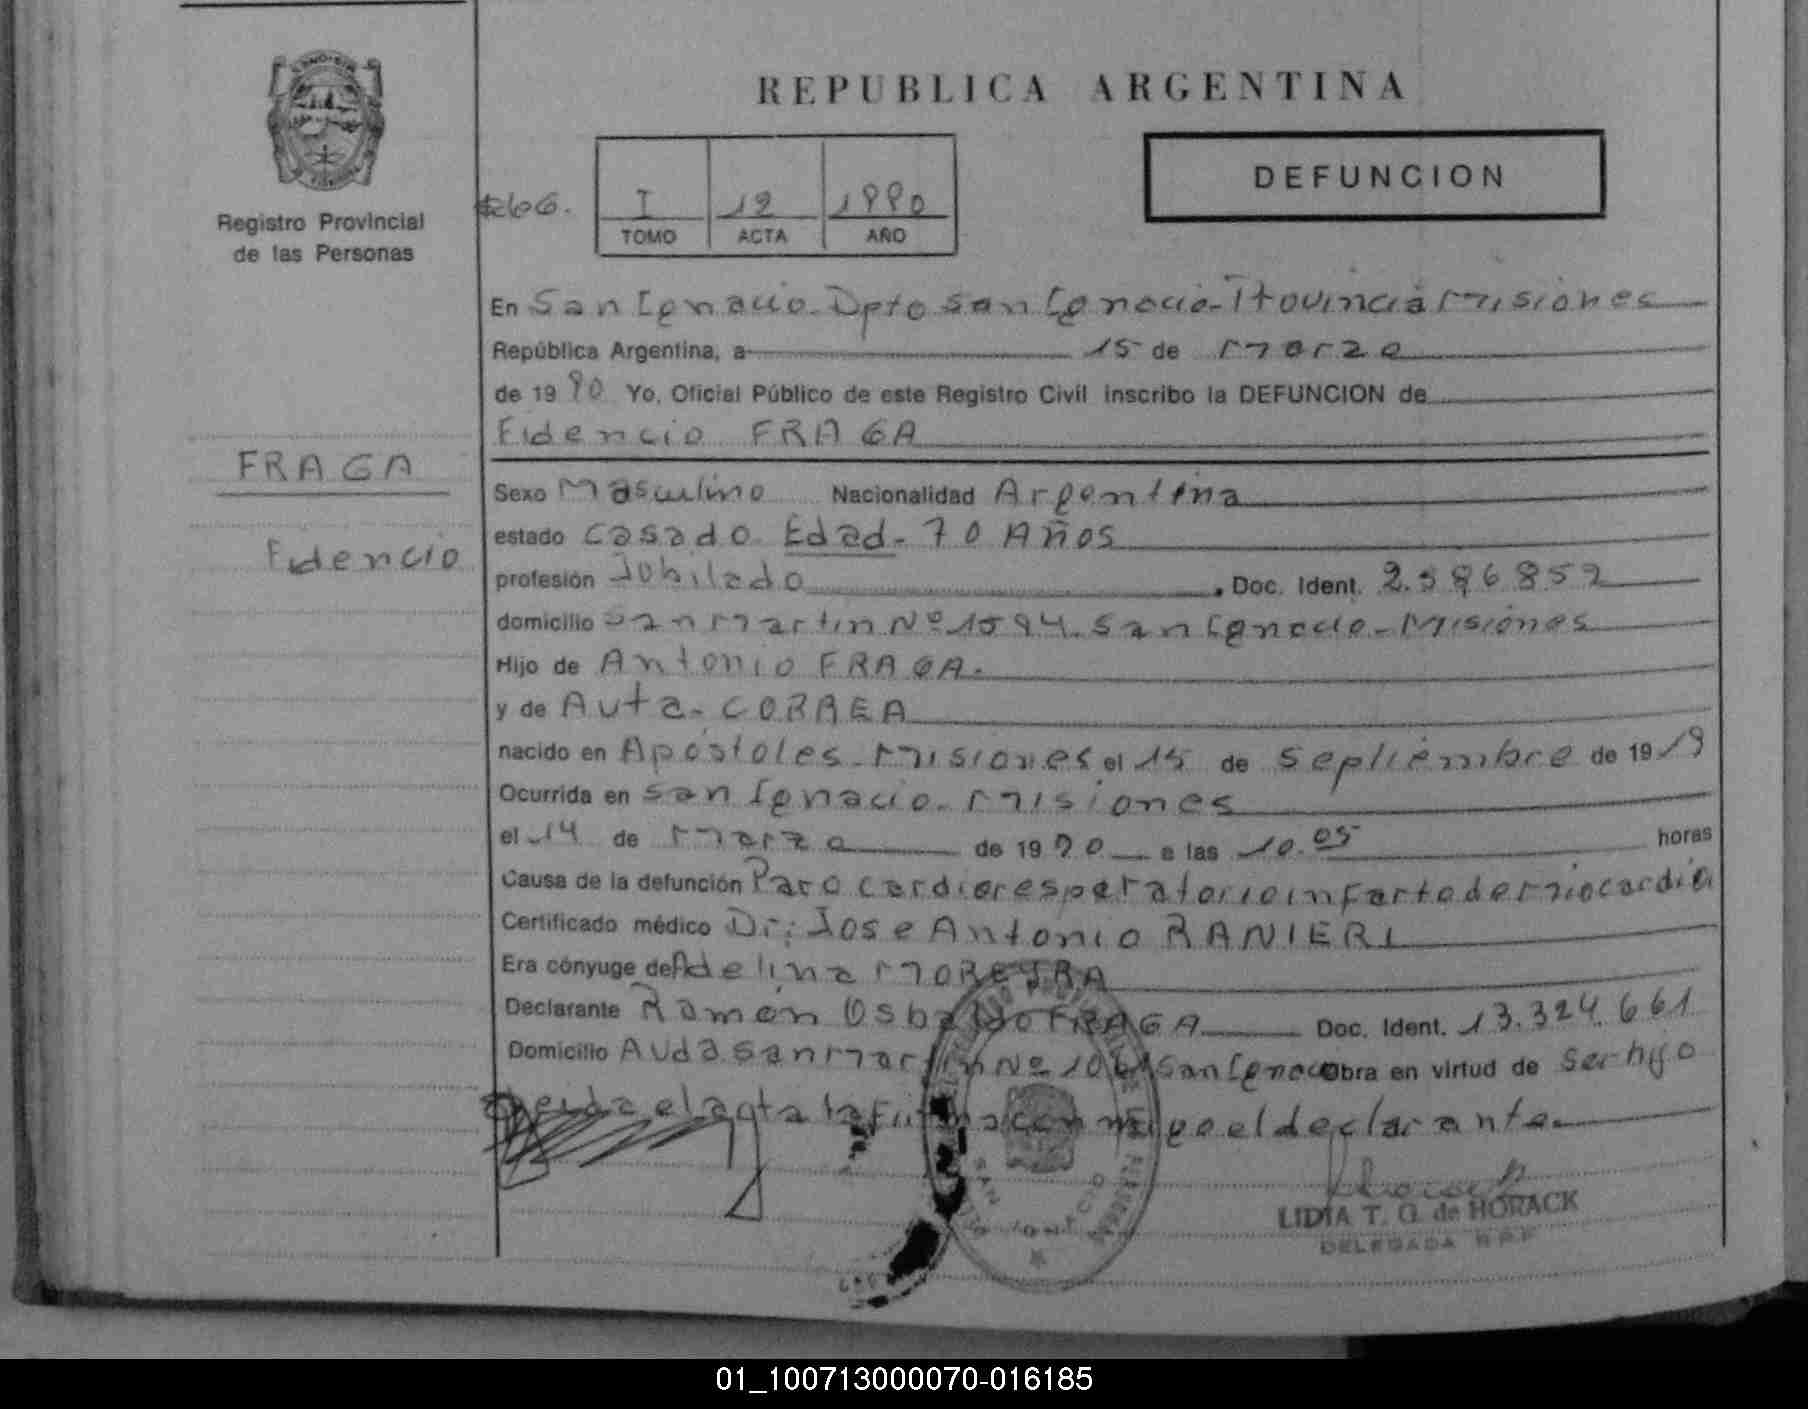 REPUBLICA ARGENTINA
DEFUNCION
Registro Provincial
de las Personas
I 19 1990
TOMO ACTA AÑO
En San Ignacio - Dpto San Ignacio - Provincia Misiones
República Argentina, a 15 de Marzo
de 1990 Yo, Oficial Público de este Registro Civil inscribo la DEFUNCION de
Fidencio FRAGA
FRAGA
Fidencio
Sexo Masculino Nacionalidad Argentina
estado Casado Edad - 70 Años
profesión Jubilado Doc. Ident. 2.586852
domicilio San Martin Nº 1594. San Ignacio - Misiones
Hijo de Antonio FRAGA.
y de Auta - CORREA
nacido en Apóstoles - Misiones el 15 de Septiembre de 1919
Ocurrida en San Ignacio - Misiones
el 14 de Marzo de 1990 a las 10.05 horas
Causa de la defunción Paro cardioresperatorio infarto de miocardio
Certificado médico Dr: Jose Antonio RANIERI
Era cónyuge de Adelina MOREIRA
Declarante Ramón Osbaldo FRAGA Doc. Ident. 13.324.661
Domicilio Avda San Martin Nº San Ignacio Obra en virtud de Ser hijo
Leida el acta la Firma conmigo el declarante
SAN IGNACIO
LIDIA T. G. de HORACK
DELEGADA R.P.P.
01_100713000070-016185